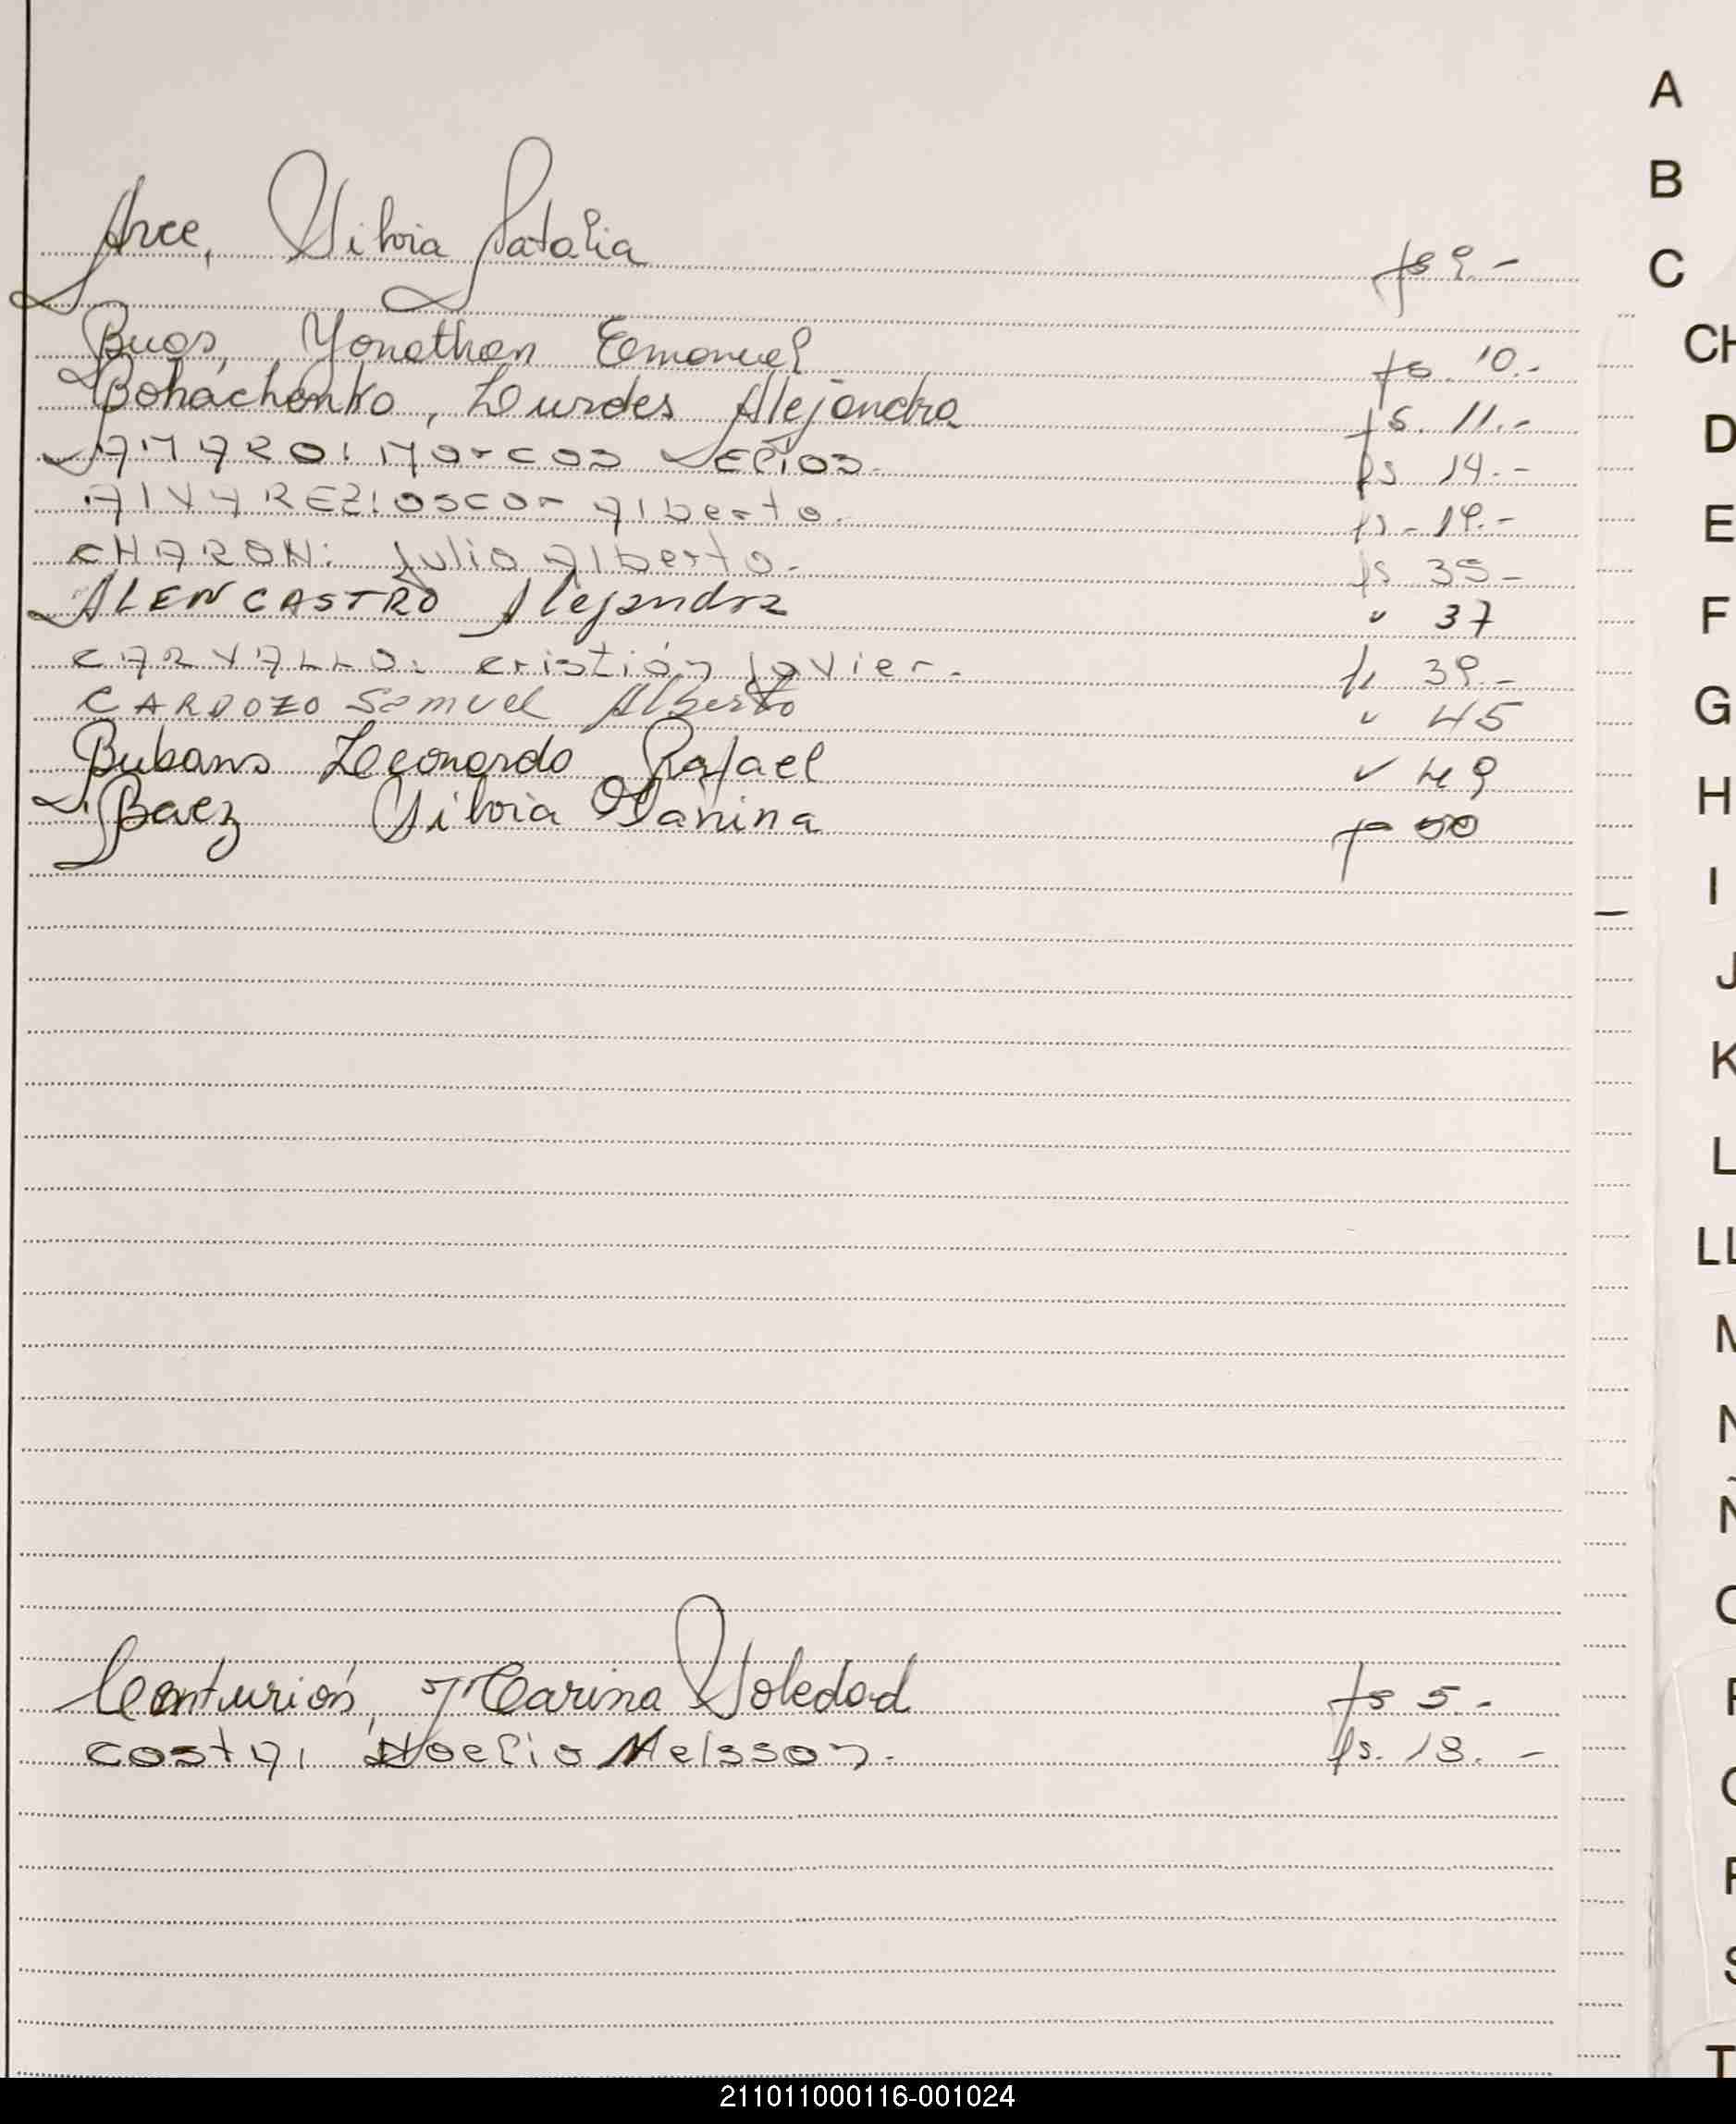 A
B
Arce, Silvia Natalia fs 9.-
C
Bugs, Yonathan Emanuel fs. 10.-
CH
Bohachenko, Lurdes Alejandra fs. 11.-
D
AMARO: Marcos fs 14.-
ALVAREZ: Oscar Alberto. fs - 19.-
E
CHARON: Julio Alberto. fs 35-
ALENCASTRO Alejandra " 37
F
CARVALLO. Cristián Javier. fs 39-
CARDOZO Samuel Alberto " 45
G
Bubans Leonardo Rafael " 49
H
Baez Silvia Yanina f 50
I
J
K
L
LL
M
N
Ñ
O
Centurión, Carina Soledad fs 5.-
Costa, Noelio Melsson. fs. 18. -
Q
R
S
T
211011000116-001024